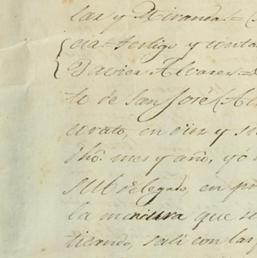 las y Miranda = (
cia = testigo y conta
Xavier Alvarez =
te de San José (A
corato, en diez y s
dho. mes y año, yó
subdelegdo, en p
la mensura que se
tiando, salí con las